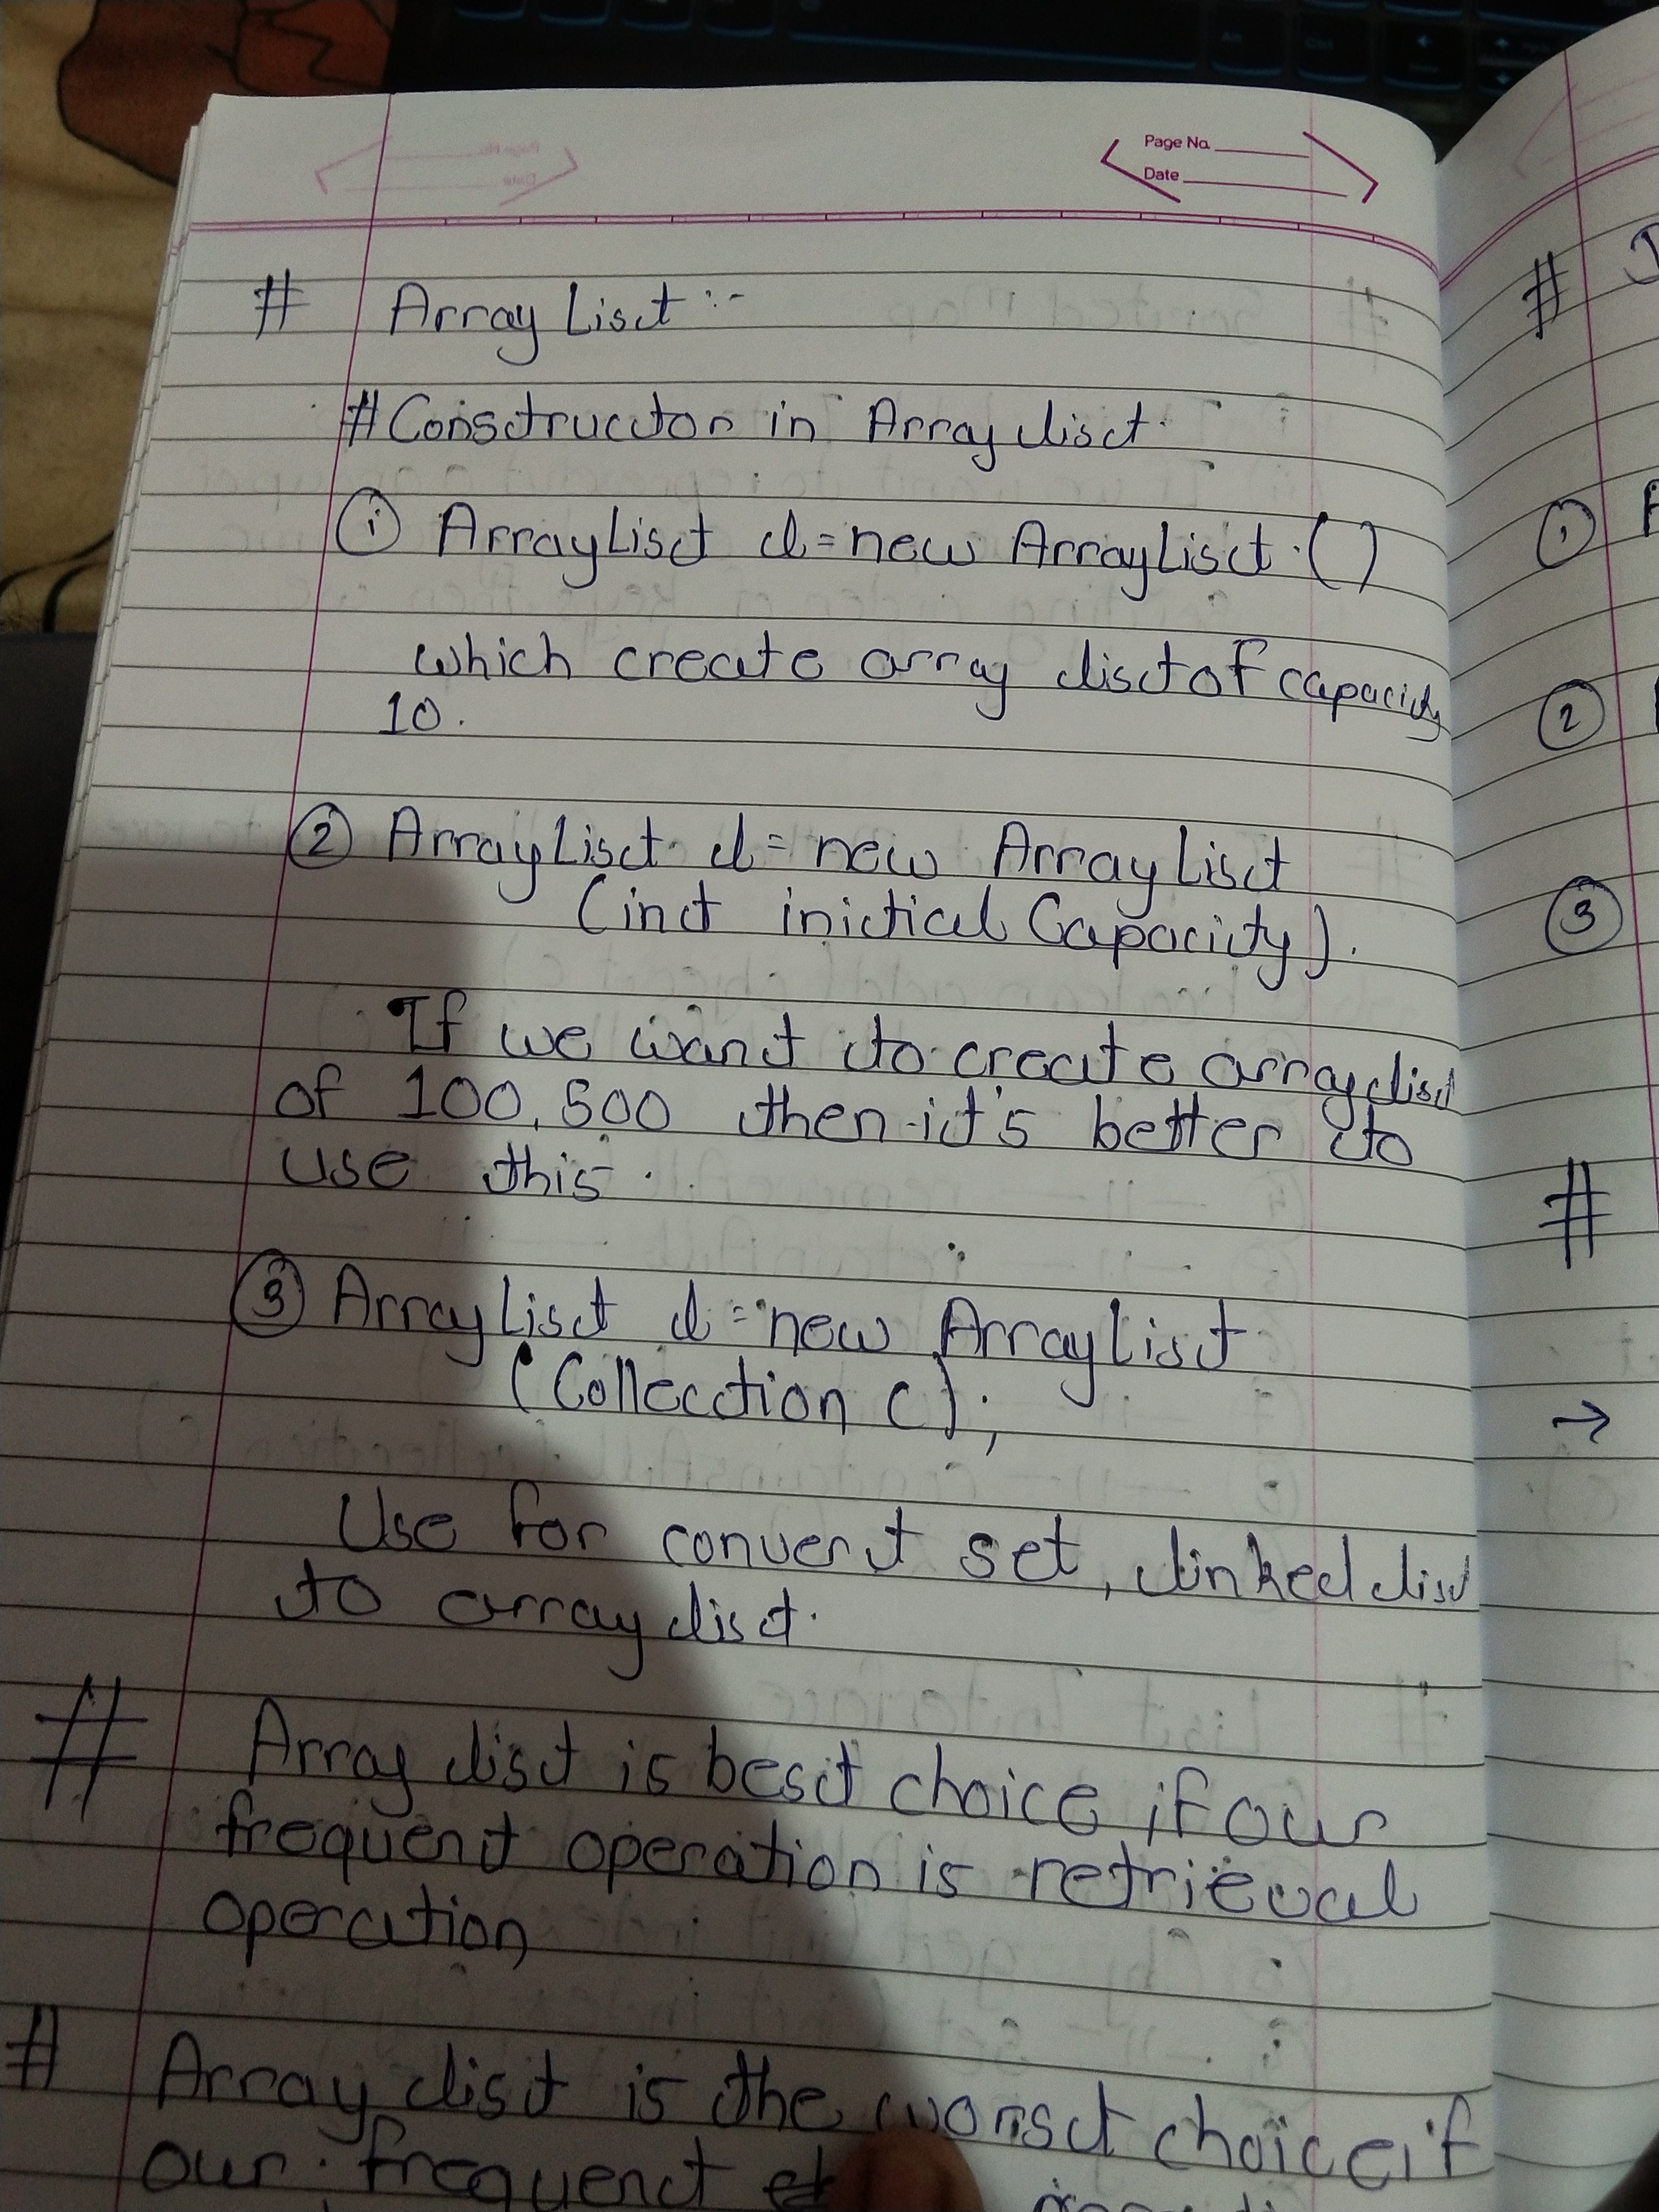 Page No.
Date
# Array List :-
# Constructor in Array list.
① ArrayList l = new ArrayList ()
which create array list of capacity
10.
② ArrayList l = new ArrayList
(int initial Capacity).
If we want to create array list
of 100, 500 then it's better to
use this.
③ ArrayList l = new ArrayList
(Collection c);
Use for convert set, linked list
to array list.
# Array list is best choice if our
frequent operation is retrieval
operation
# Array list is the worst choice if
our frequent
#
①
②
③
#
→